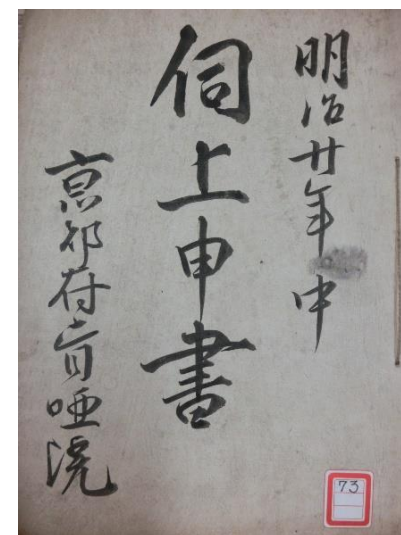 明治廿年中
伺上申書
京都府盲唖院
73